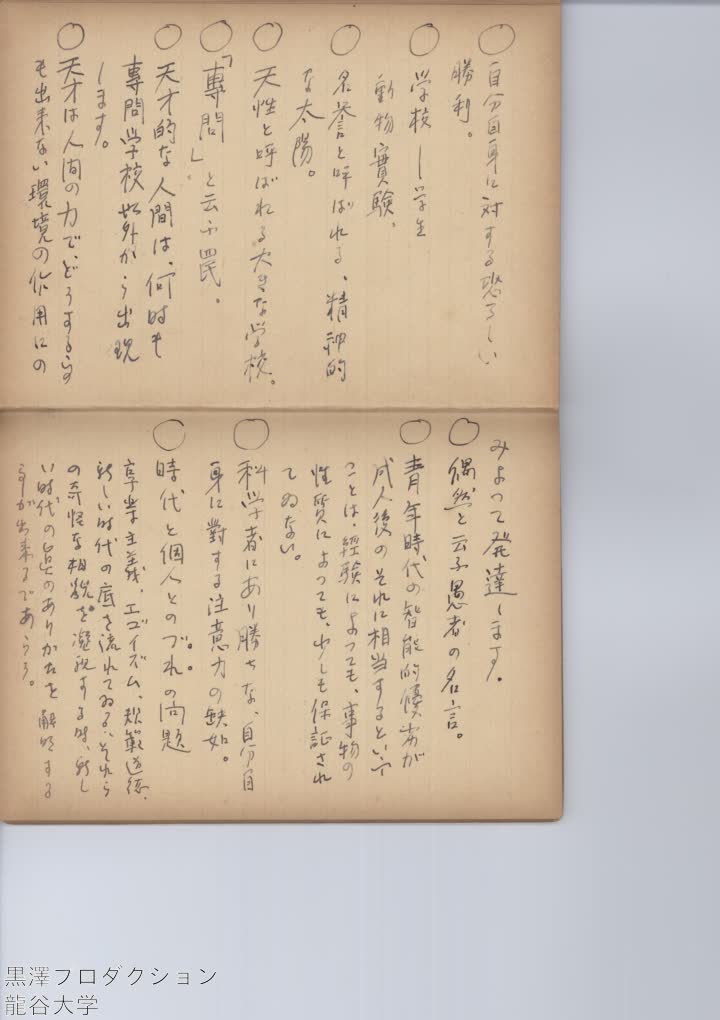 ○ 自分自身に対する恐ろしい
勝利。
○ 学校―学生
動物實験、
○ 名誉と呼ばれる、精神的
な太陽。
○ 天性と呼ばれる大きな学校。
○ 「専問」と云ふ罠。
○ 天才的な人間は、何時も
専問学校以外から出現
します。
○ 天才は人間の力で、どうする事
も出来ない環境の作用にの
みよつて発達します。
○ 偶然と云ふ愚者の名言。
○ 青年時代の智能的優劣が
成人後のそれに相当するといふ
ことは、經験によつても、事物の
性質によつても、少しも保証され
てゐない。
○ 科学者にあり勝ちな、自分自
身に對する注意力の缺如。
○ 時代と個人とのづれの問題
享楽主義、エゴイズム、規範道徳、
新しい時代の底を流れてゐる、それら
の奇怪な相貌を凝視する時、新し
い時代の のありかたを 解明する
事が出来るであらう。
黒澤プロダクション
龍谷大学